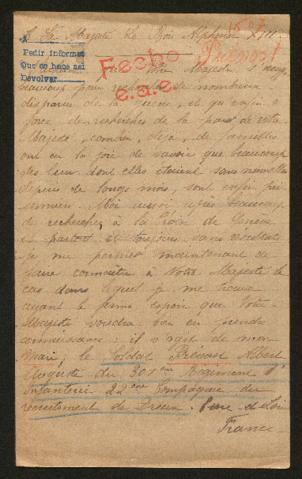 A Sa Majesté Le Roi Alphonse XIII
Pedir informes
Que se haga así
Devolver
Fecho
e.a.e
Prevost
Votre Majesté s'occupe
beaucoup pour de nombreux
disparus de la guerre, et qu'enfin à
force de recherches de la part de votre
Majesté, combien, déjà, de familles
ont eu la joie de savoir que beaucoup
des leurs dont elles étaient sans nouvelles
depuis de longs mois, sont enfin pri-
sonniers. Moi aussi après beaucoup
de recherches, à la Croix de Genève
et partout, et toujours sans résultats
je me permets maintenant de
faire connaître à Votre Majesté le
cas dans lequel je me trouve
ayant le ferme espoir que Votre
Majesté voudra bien en prendre
connaissance: il s'agit de mon
Mari, le Soldat Prévost Albert
Auguste du 301ème Régiment d'
Infanterie 22ème Compagnie du
recrutement de Dreux. Eure et Loir
France